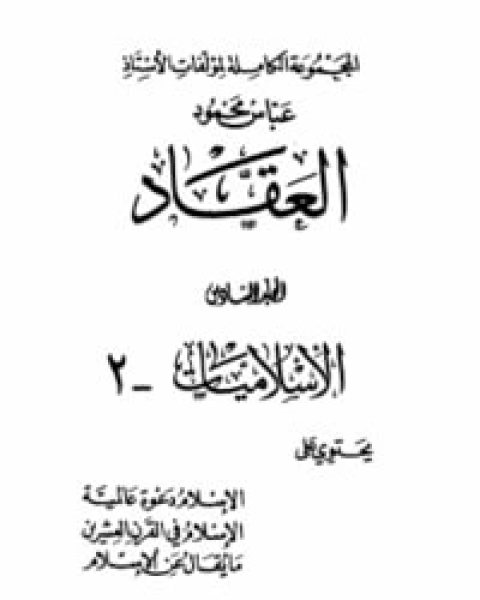 المجموعة الكاملة لمؤلفات الأستاذ
عباس محمود
العقاد
المجلد السادس
الإسلاميات - ٢
يحتوي على
الإسلام دعوة عالمية
الإسلام في القرن العشرين
ما يقال عن الإسلام